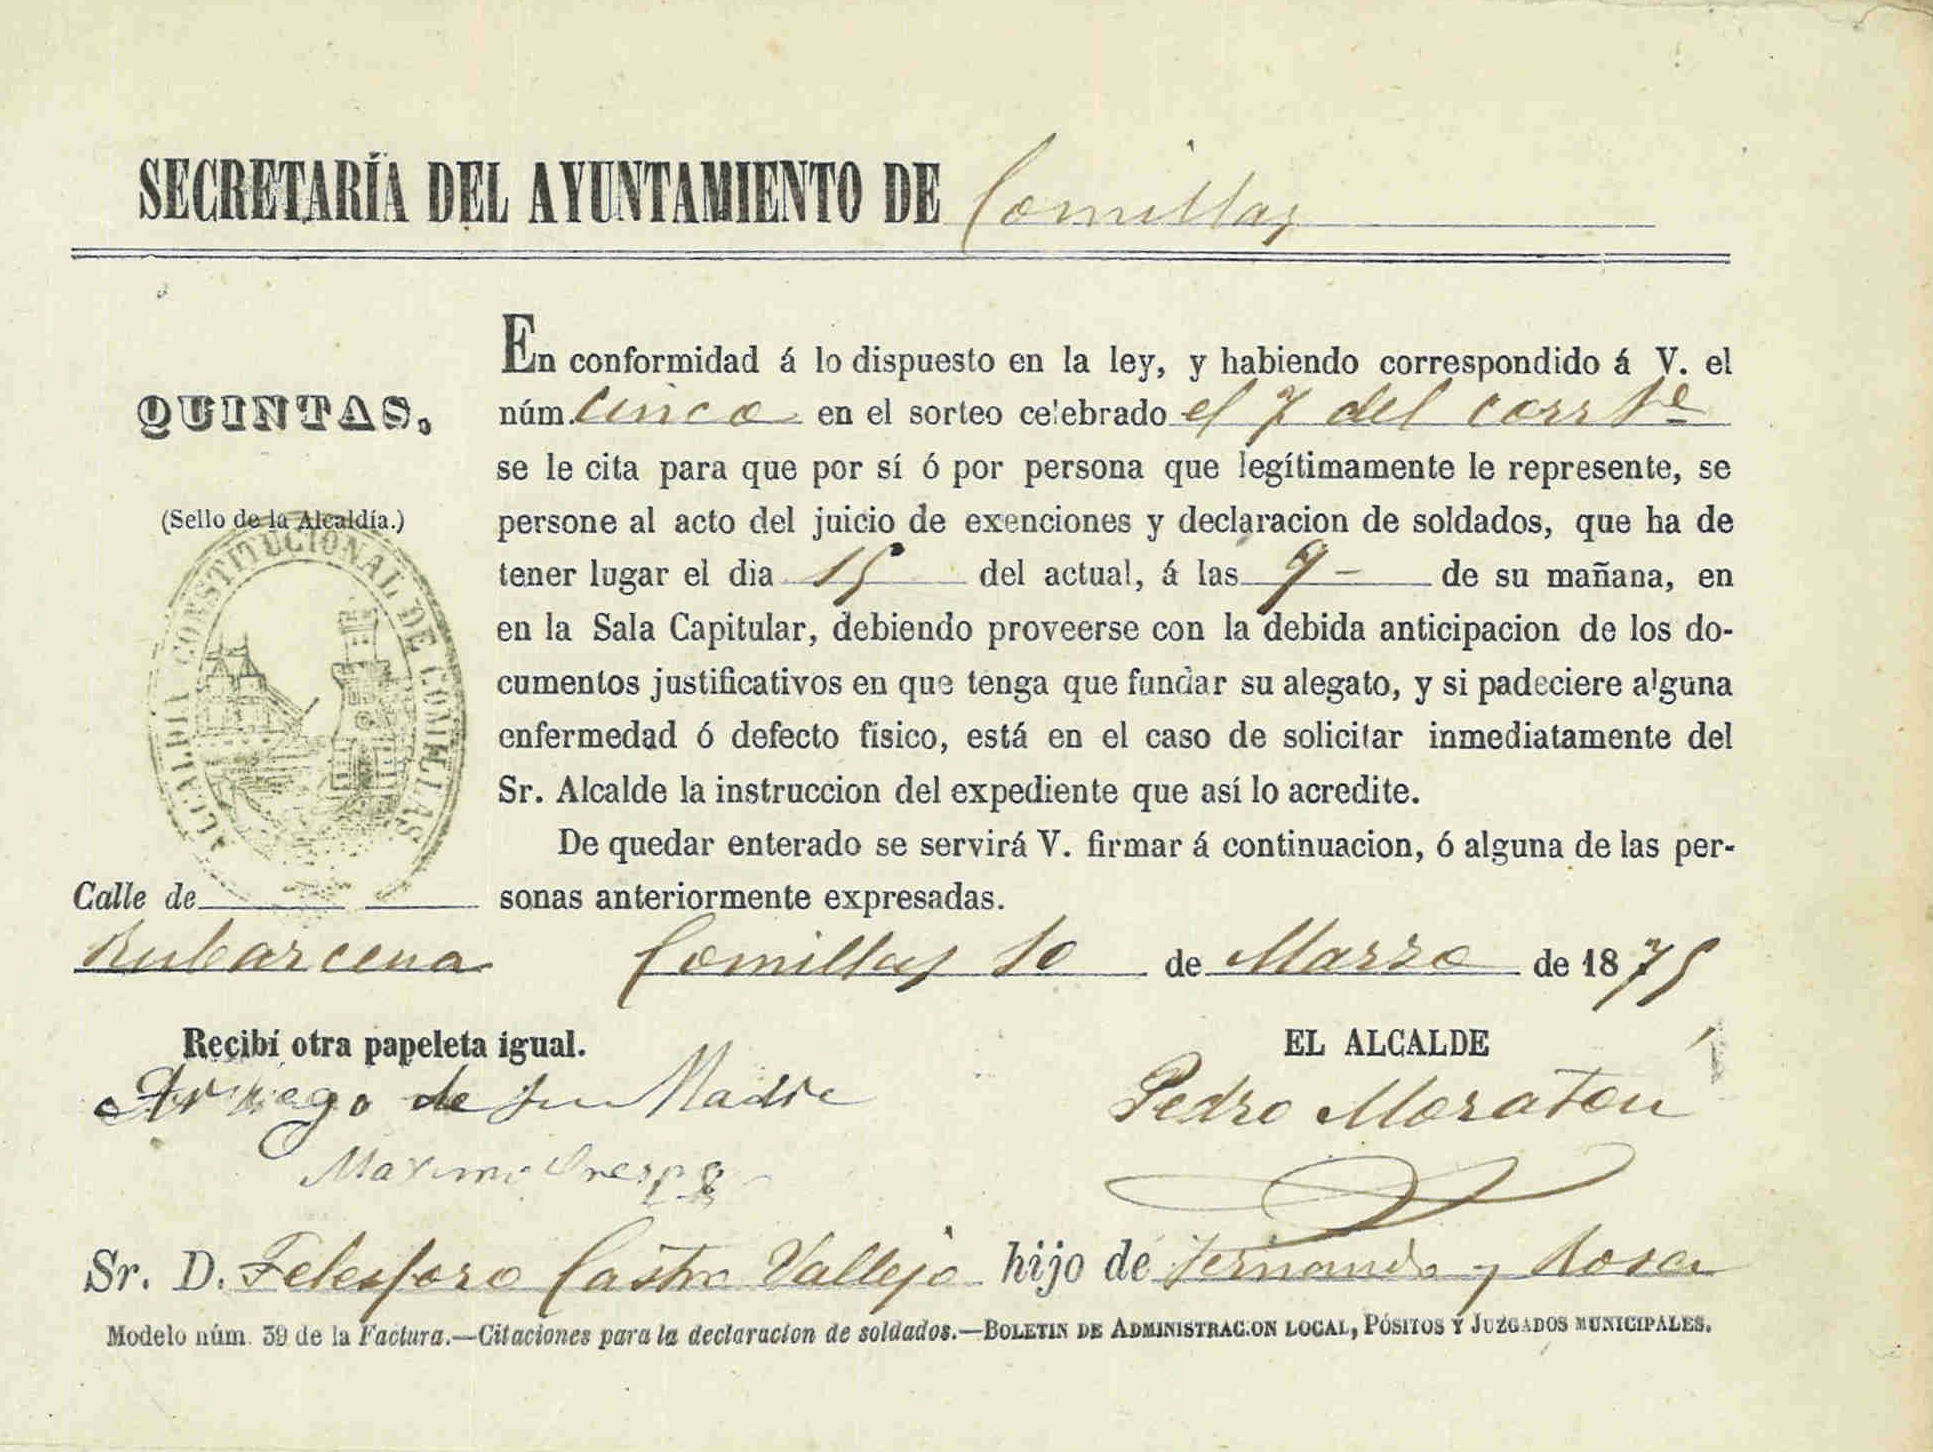 SECRETARÍA DEL AYUNTAMIENTO DE Comillas
QUINTAS.
(Sello de la Alcaldía.)
ALCALDIA CONSTITUCIONAL DE COMILLAS
En conformidad á lo dispuesto en la ley, y habiendo correspondido á V. el
núm. cinco en el sorteo celebrado el 7 del corrte
se le cita para que por sí ó por persona que legítimamente le represente, se
persone al acto del juicio de exenciones y declaracion de soldados, que ha de
tener lugar el dia 15 del actual, á las 9 - de su mañana, en
en la Sala Capitular, debiendo proveerse con la debida anticipacion de los do-
cumentos justificativos en que tenga que fundar su alegato, y si padeciere alguna
enfermedad ó defecto físico, está en el caso de solicitar inmediatamente del
Sr. Alcalde la instruccion del expediente que así lo acredite.
De quedar enterado se servirá V. firmar á continuacion, ó alguna de las per-
sonas anteriormente expresadas.
Calle de
Rubarcena
Comillas 10 de Marzo de 1875
Recibí otra papeleta igual.
A ruego de su Madre
Maximo Crespo
EL ALCALDE
Pedro Moraton
Sr. D. Telesforo Castro Vallejo hijo de Fernando y Rosa
Modelo núm. 39 de la Factura.—Citaciones para la declaracion de soldados.—BOLETIN DE ADMINISTRACION LOCAL, PÓSITOS Y JUZGADOS MUNICIPALES.